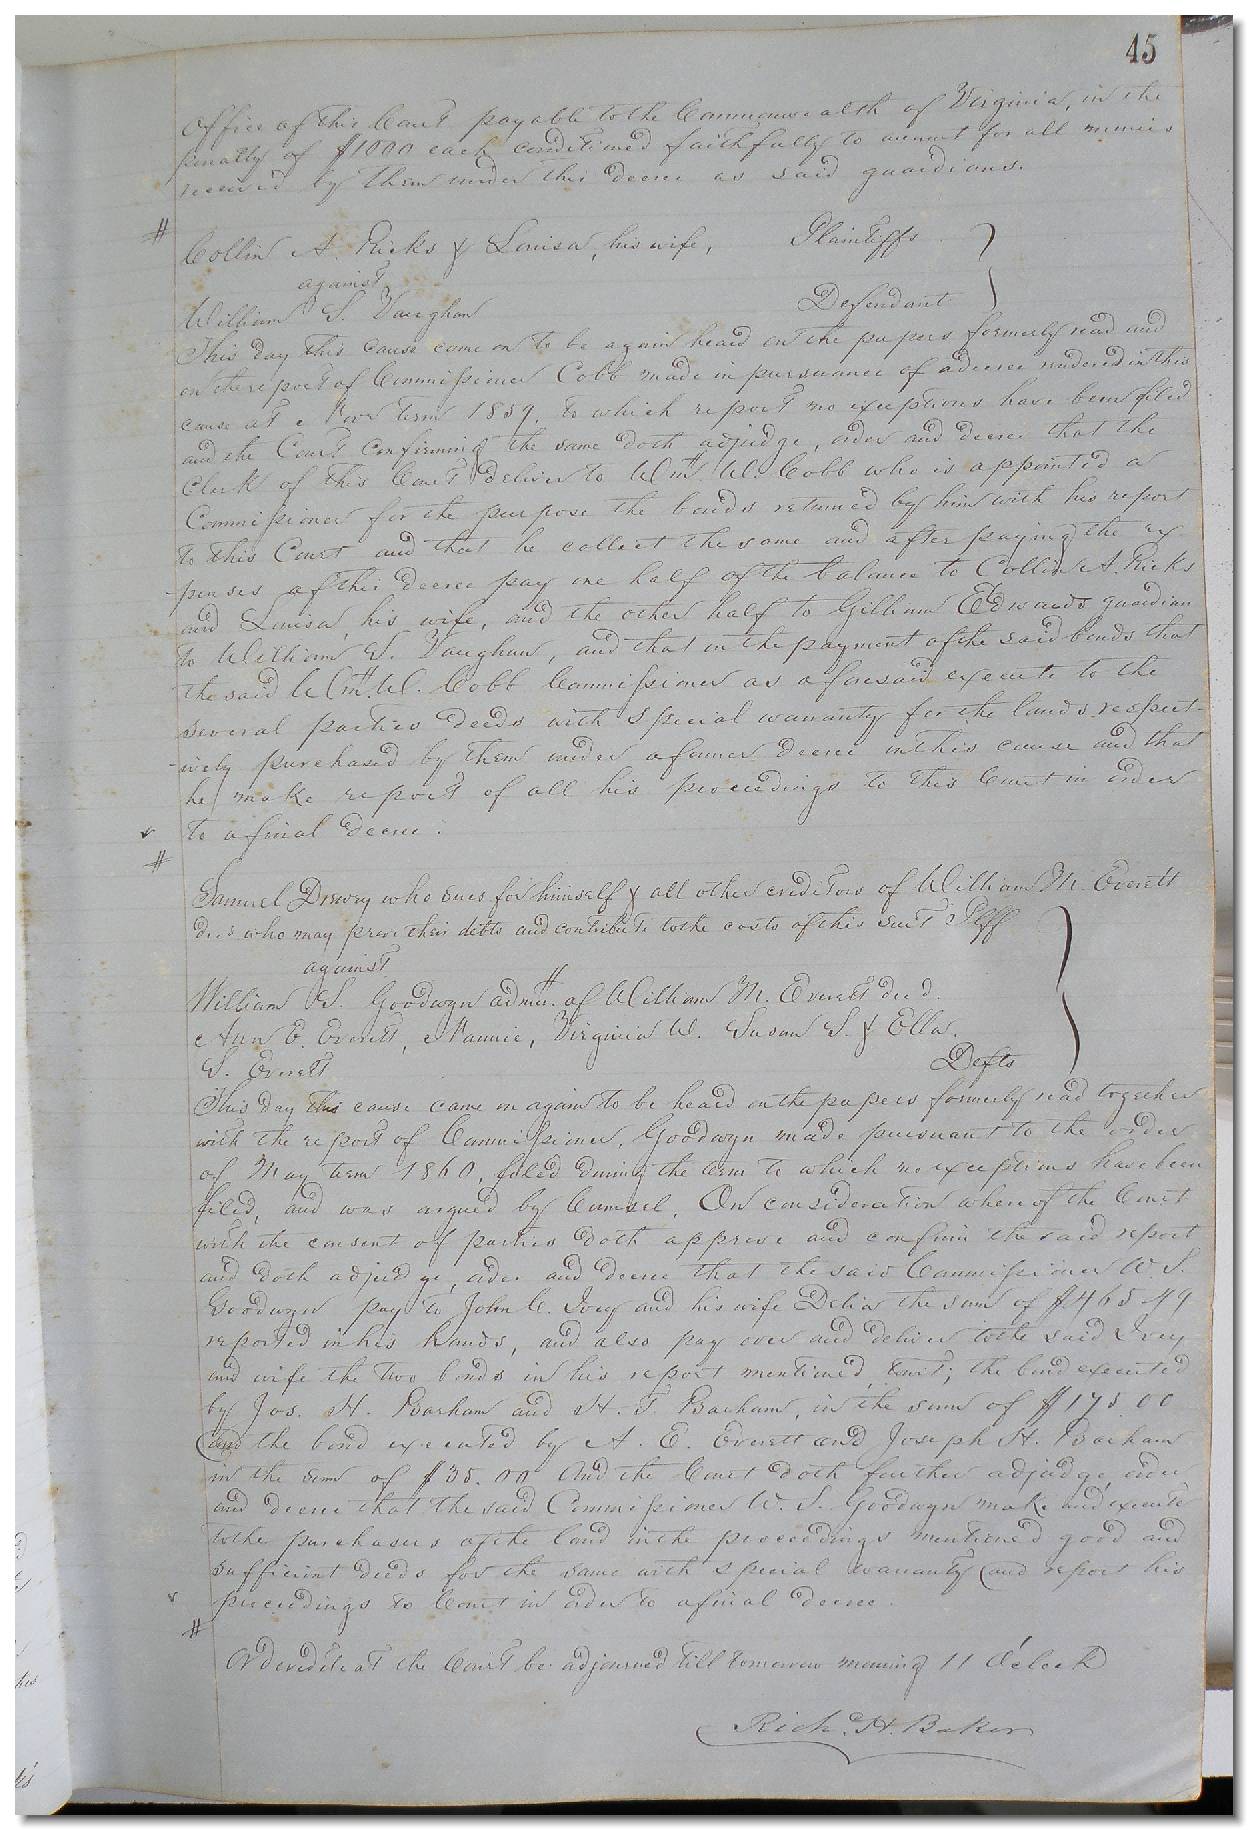 45
Office of this Court payable to the Commonwealth of Virginia, in the
penalty of $1000 each conditioned faithfully to account for all monies
received by them under this decree as said guardians.
#
Collin A. Ricks & Louisa, his wife, Plaintiffs
against
William S. Vaughan Defendant
This day this cause come on to be again heard on the papers formerly read and
on the report of Commissioner Cobb made in pursuance of a decree rendered in this
cause at Novr term 1859, to which report no exceptions have been filed
and the Court confirming the same doth adjudge, order and decree that the
Clerk of this Court deliver to Wm. W. Cobb who is appointed a
Commissioner for the purpose the bonds returned by him with his report
to this Court and that he collect the same and after paying the ex-
-penses of this decree pay one half of the balance to Collin A. Ricks
and Louisa, his wife, and the other half to Gilliam Edwards guardian
to William S. Vaughan, and that on the payment of the said bonds that
the said Wm. W. Cobb Commissioner as aforesaid execute to the
several parties deeds with special warranty for the lands respect-
-ively purchased by them under a former decree in this cause and that
he make report of all his proceedings to this Court in order
to a final decree.
#
Samuel Drewry who sues for himself & all other creditors of William M. Everett
decd who may prove their debts and contribute to the costs of this suit Plff
against
William S. Goodwyn admr. of William M. Everett decd.
Ann E. Everett, Nannie, Virginia W. Susan S. & Ella.
S. Everett Defts
This day this cause came on again to be heard on the papers formerly read together
with the report of Commissioner, Goodwyn made pursuant to the order
of May term 1860, filed during the term to which no exceptions have been
filed, and was argued by Counsel. On consideration whereof the Court
with the consent of parties doth approve and confirm the said report
and doth adjudge, order and decree that the said Commissioner W. S.
Goodwyn pay to John C. Ivey and his wife Delia the sum of $465 49
reported in his hands, and also pay over and deliver to the said Ivey
and wife the two bonds in his report mentioned, towit; the bond executed
by Jos. H. Barham and H. T. Barham, in the sum of $175.00
and the bond executed by A. E. Everett and Joseph H. Barham
in the sum of $35.00 And the Court doth further adjudge, order
and decree that the said Commissioner W. S. Goodwyn make and execute
to the purchasers of the land in the proceedings mentioned good and
sufficient deeds for the same with special warranty and report his
proceedings to Court in order to a final decree.
#
Ordered that the Court be adjourned till tomorrow morning 11 O'clock
Rich. H. Baker